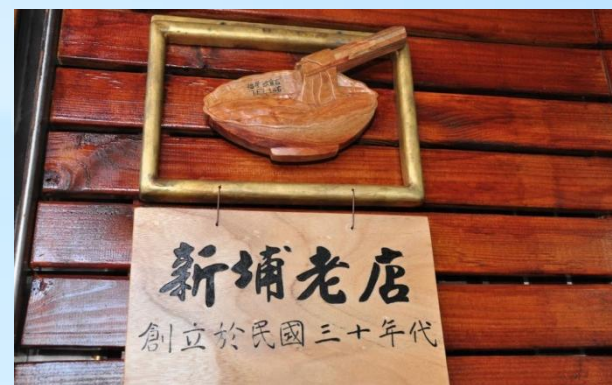 新埔老店
創立於民國三十年代